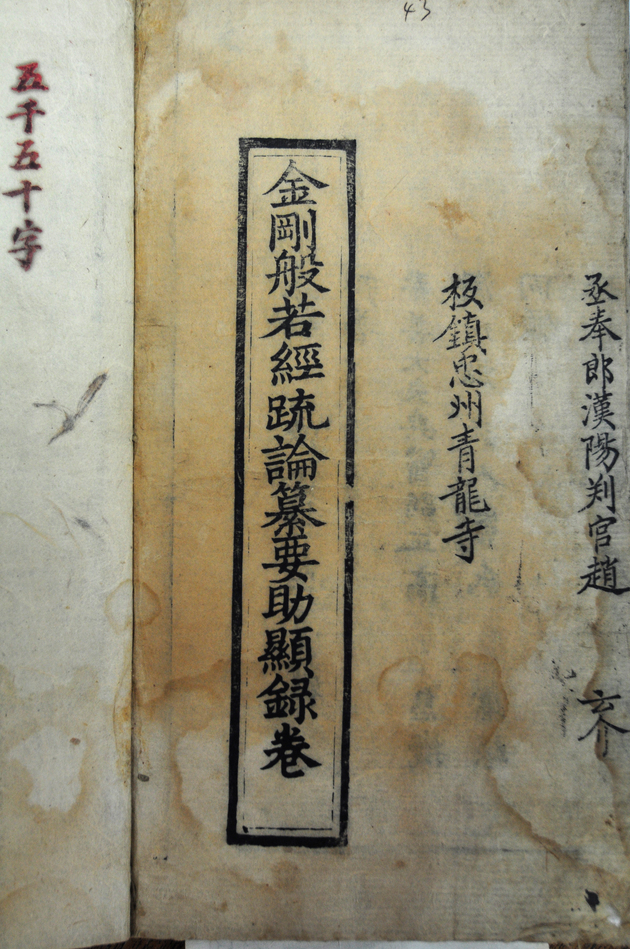 43
丞奉郎漢陽判官趙 云介
板鎮忠州青龍寺
金剛般若經䟽論纂要助顯録卷
五千五十字